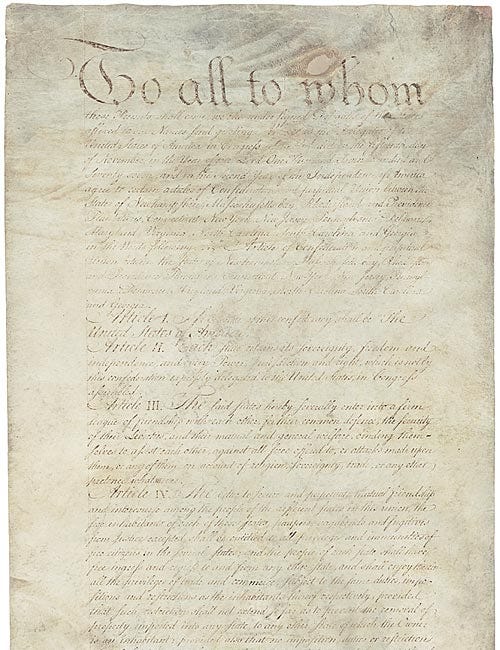 To all to whom
these Presents shall come, we the under signed Delegates of the States
affixed to our Names send greeting. Whereas the Delegates of the
United States of America in Congress assembled did on the fifteenth day
of November in the Year of our Lord One Thousand Seven Hundred and
Seventy seven, and in the Second Year of the Independence of America
agree to certain articles of Confederation and perpetual Union between the
States of Newhampshire, Massachusetts-bay, Rhodeisland and Providence
Plantations, Connecticut, New York, New Jersey, Pennsylvania, Delaware,
Maryland, Virginia, North-Carolina, South-Carolina and Georgia
in the Words following, viz. Articles of Confederation and perpetual
Union between the states of Newhampshire, Massachusetts-bay, Rhodeisland
and Providence Plantations, Connecticut, New-York, New-Jersey, Pennsyl-
vania, Delaware, Maryland, Virginia, North-Carolina, South-Carolina
and Georgia.
Article I. The Stile of this confederacy shall be "The
United States of America."
Article II. Each state retains its sovereignty, freedom and
independence, and every Power, Jurisdiction and right, which is not by
this confederation expressly delegated to the United States, in Congress
assembled.
Article III. The said states hereby severally enter into a firm
league of friendship with each other, for their common defence, the security
of their Liberties, and their mutual and general welfare, binding them-
selves to assist each other, against all force offered to, or attacks made upon
them, or any of them, on account of religion, sovereignty, trade, or any other
pretence whatever.
Article IV. The better to secure and perpetuate mutual friendship
and intercourse among the people of the different states in this union, the
free inhabitants of each of these states, paupers, vagabonds and fugitives
from Justice excepted, shall be entitled to all privileges and immunities of
free citizens in the several states; and the people of each state shall have
free ingress and regress to and from any other state, and shall enjoy therein
all the privileges of trade and commerce, subject to the same duties, impo-
sitions and restrictions as the inhabitants thereof respectively, provided
that such restriction shall not extend so far as to prevent the removal of
property imported into any state, to any other state of which the Owner
is an inhabitant; provided also that no imposition, duties or restriction